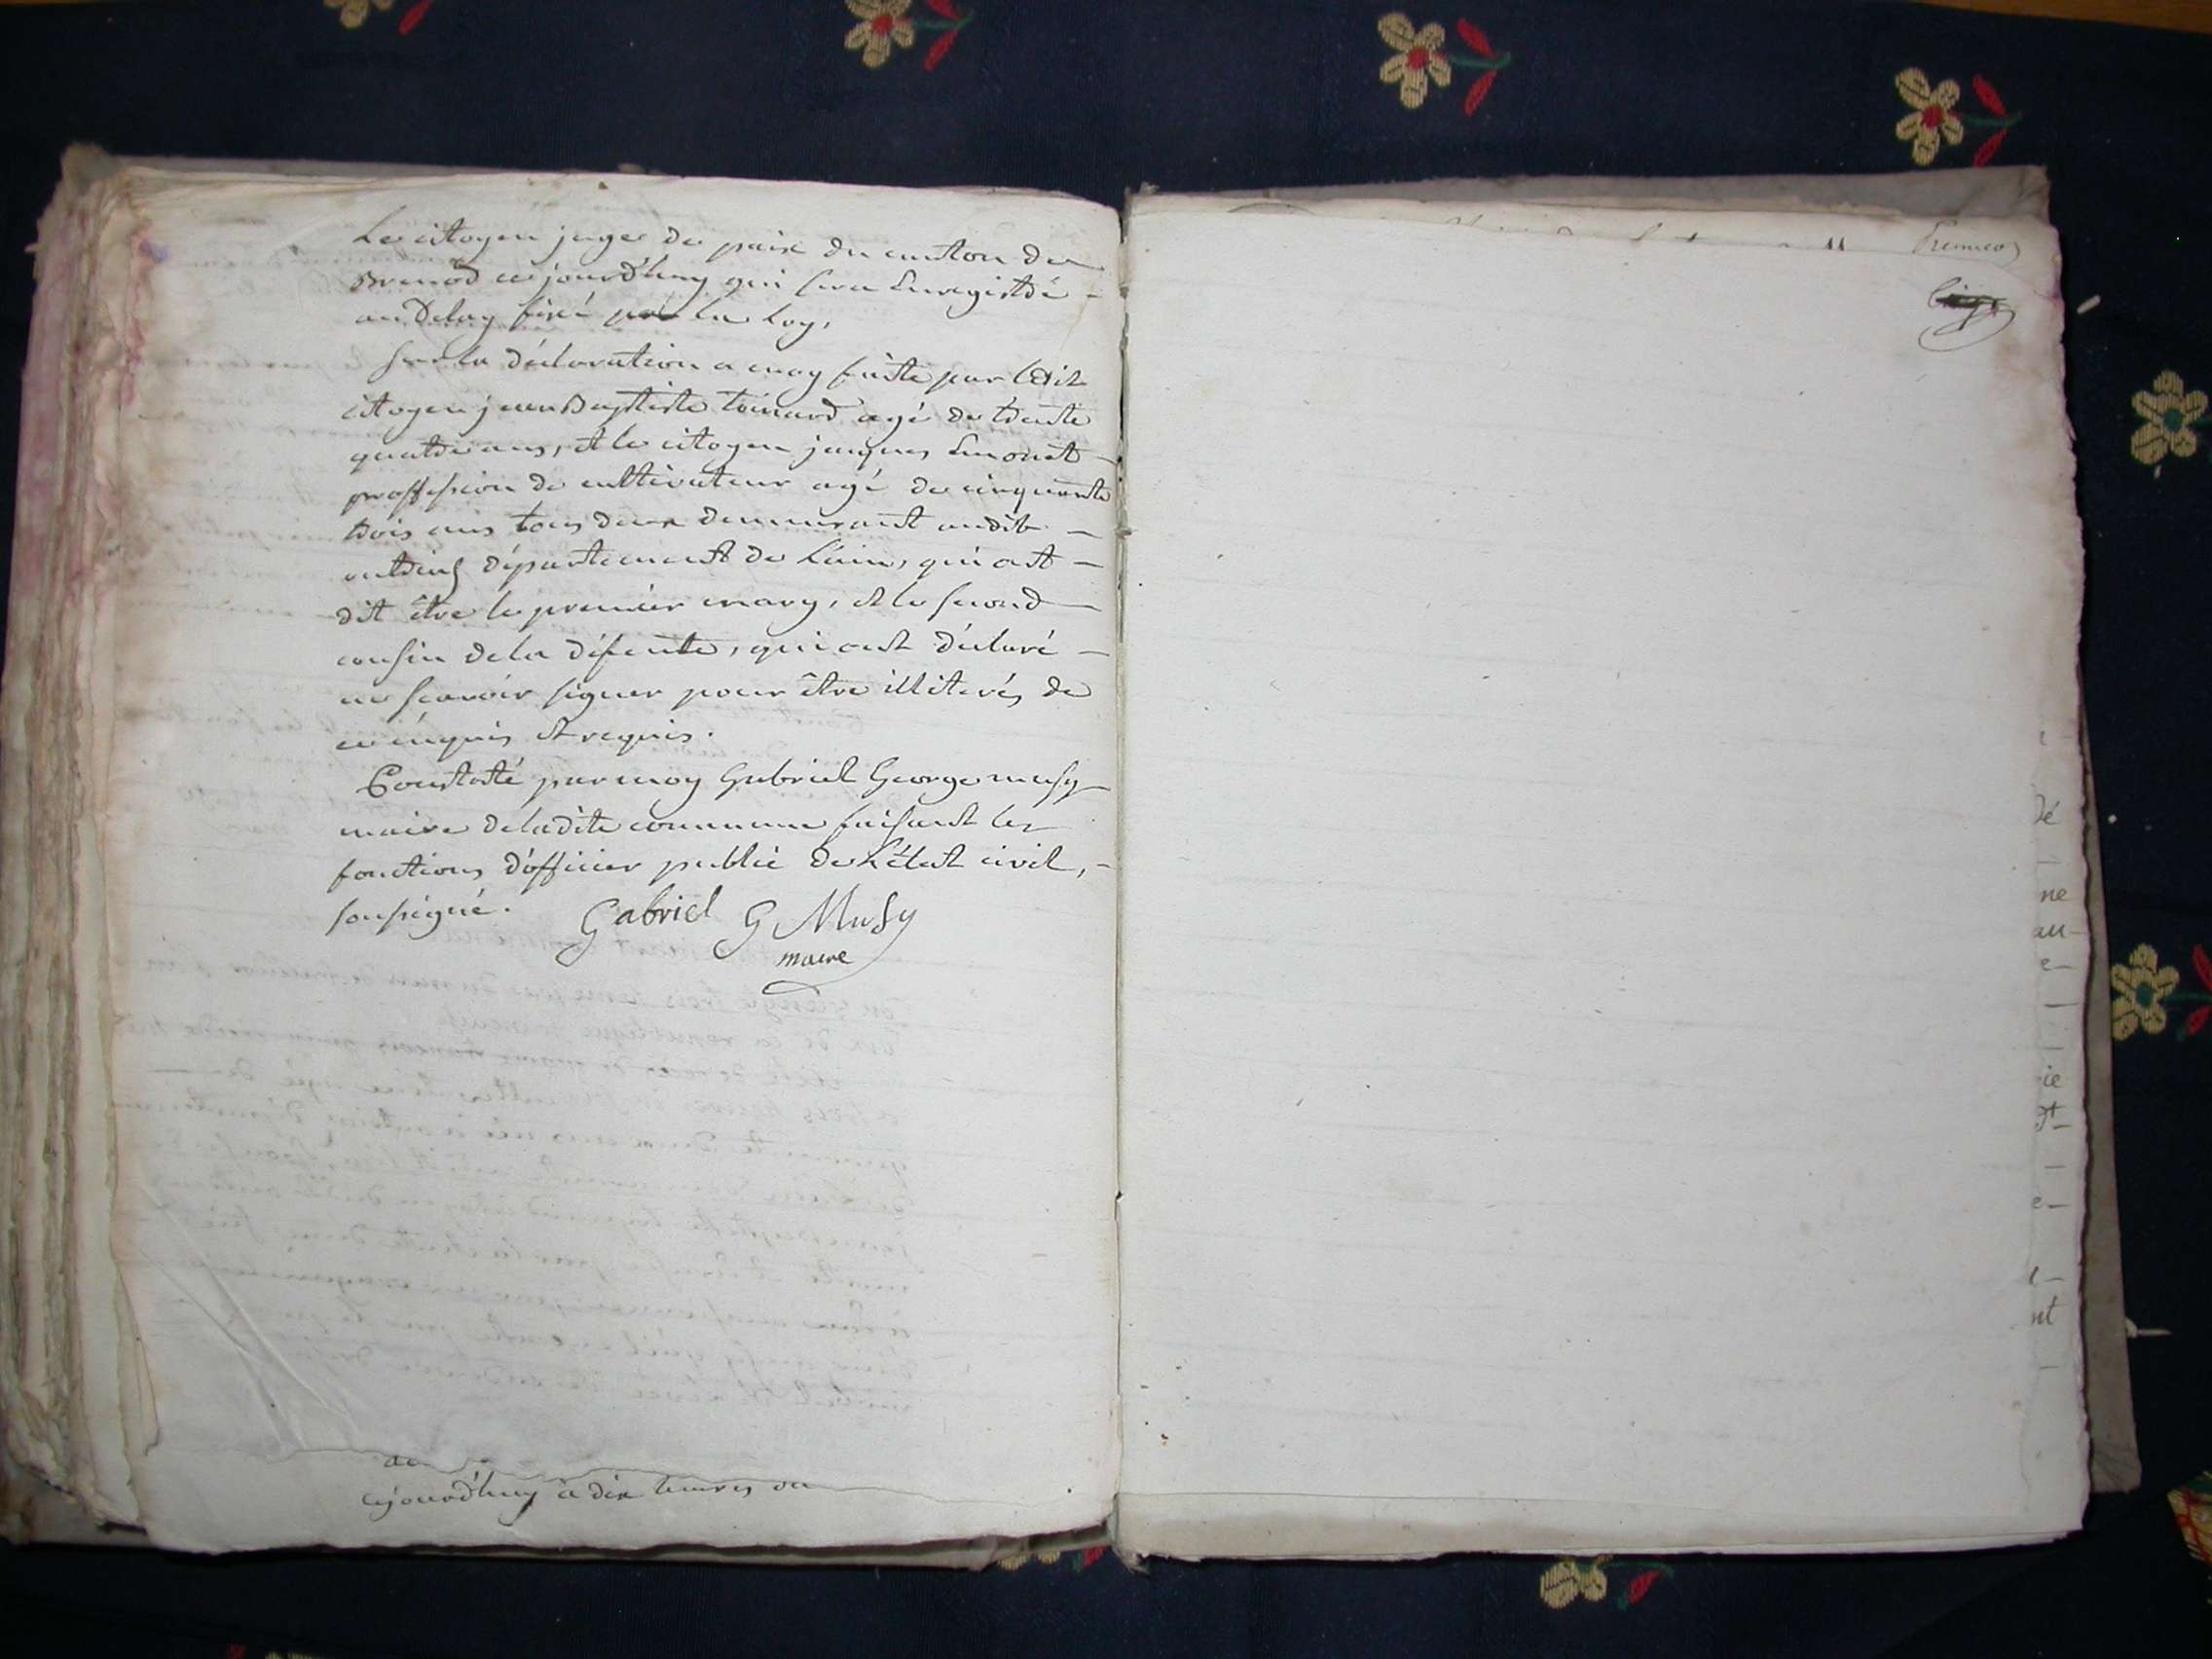 Le citoyen juge de paix du canton de
Brenod cejourd'huy qui sera Enregistré -
au Delay fixé par la Loy,
Sur la déclaration a moy faite par ledit
citoyen jean Baptiste toinard agé de trente
quatre ans, et le citoyen jacques Emonet -
proffession de cultivateur agé de cinquante
trois ans tous deux demeurant audit -
outriaz département de L'ain, qui ont -
dit être le premier mary, et le second -
cousin de la défunte, qui ont déclaré -
ne scavoir signer pour être illiterés de
ce enquis et requis.
Constaté par moy Gabriel George musy -
maire de ladite commune faisant les
fonctions d'officier public de L'état civil, -
soussigné. Gabriel G Musy
maire
cejourd'huy à dix heures du
11 Premier
dé
ne
au-
e-
ie
dt-
e-
nt